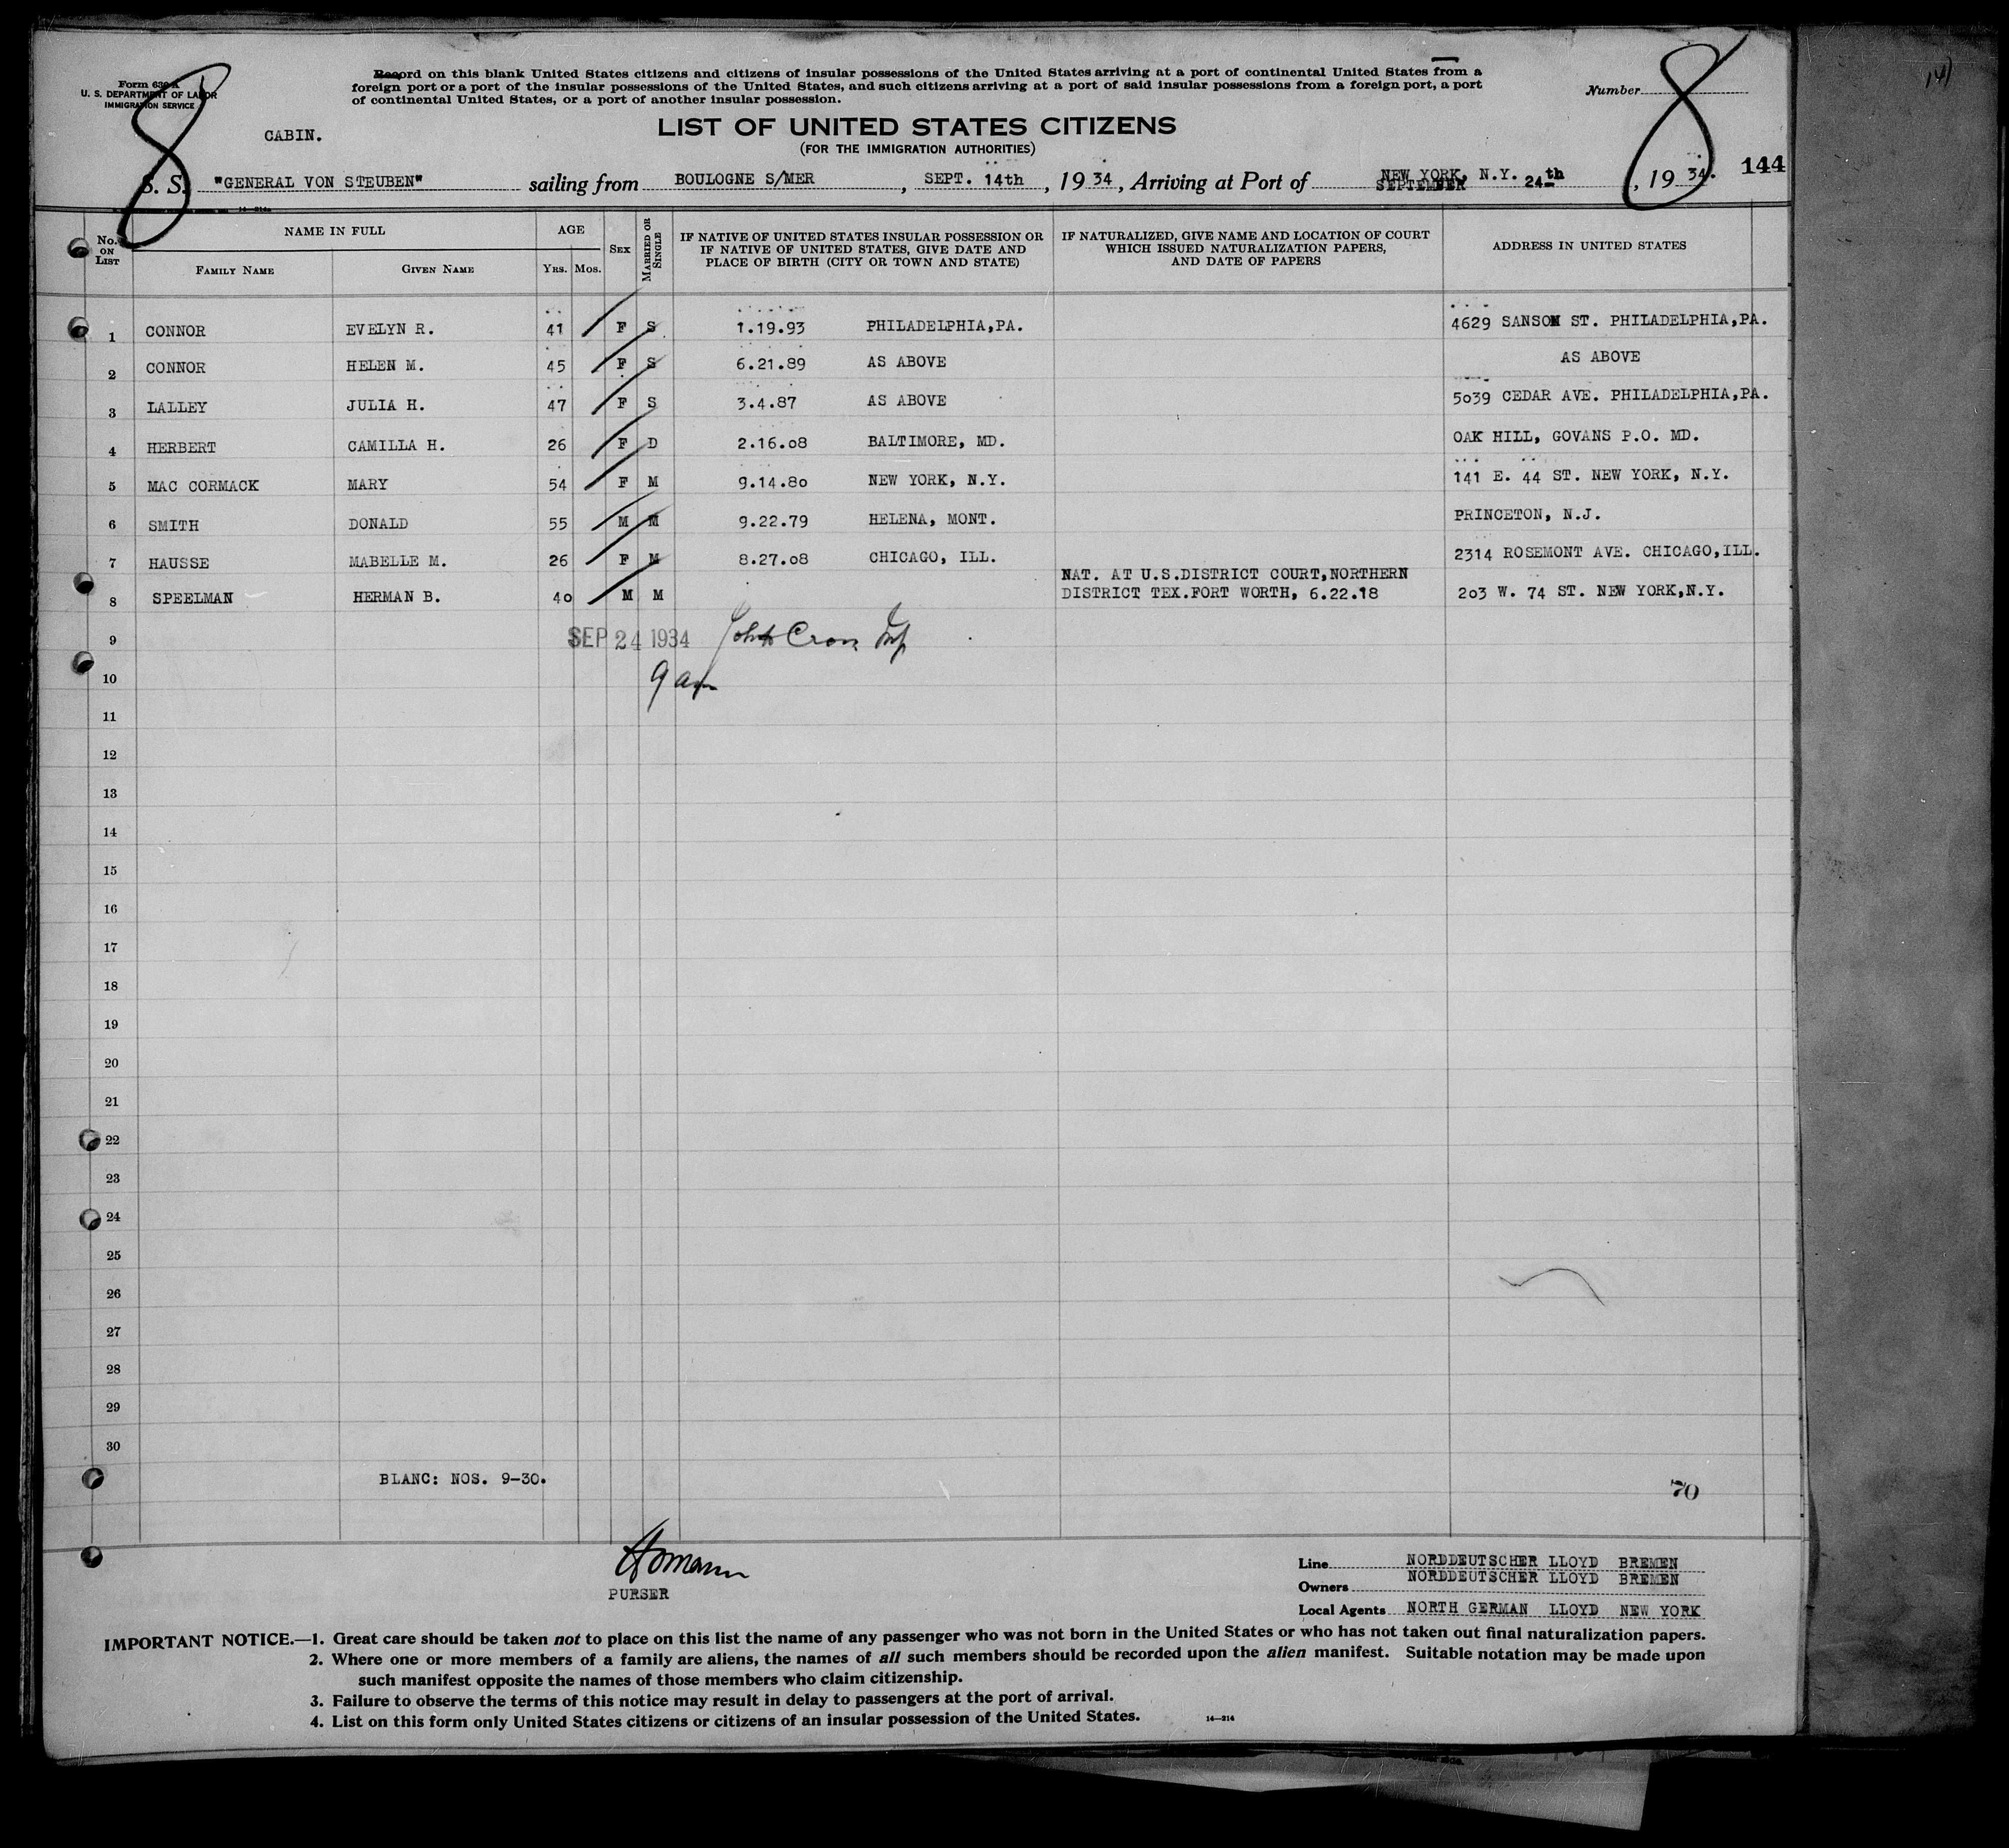 Form 630 A
U. S. DEPARTMENT OF LABOR
IMMIGRATION SERVICE
8
Record on this blank United States citizens and citizens of insular possessions of the United States arriving at a port of continental United States from a
foreign port or a port of the insular possessions of the United States, and such citizens arriving at a port of said insular possessions from a foreign port, a port
of continental United States, or a port of another insular possession.
Number
8
CABIN.
LIST OF UNITED STATES CITIZENS
(FOR THE IMMIGRATION AUTHORITIES)
S. S. "GENERAL VON STEUBEN" sailing from BOULOGNE S/MER, SEPT. 14th, 1934, Arriving at Port of NEW YORK, N.Y. SEPTEMBER 24th, 1934. 144
No. ON LIST
NAME IN FULL
FAMILY NAME GIVEN NAME
AGE
YRS. MOS.
SEX
MARRIED OR SINGLE
IF NATIVE OF UNITED STATES INSULAR POSSESSION OR
IF NATIVE OF UNITED STATES, GIVE DATE AND
PLACE OF BIRTH (CITY OR TOWN AND STATE)
IF NATURALIZED, GIVE NAME AND LOCATION OF COURT
WHICH ISSUED NATURALIZATION PAPERS,
AND DATE OF PAPERS
ADDRESS IN UNITED STATES
1 CONNOR EVELYN R. 41 F S 1.19.93 PHILADELPHIA,PA. 4629 SANSOM ST. PHILADELPHIA,PA.
2 CONNOR HELEN M. 45 F S 6.21.89 AS ABOVE AS ABOVE
3 LALLEY JULIA H. 47 F S 3.4.87 AS ABOVE 5039 CEDAR AVE. PHILADELPHIA,PA.
4 HERBERT CAMILLA H. 26 F D 2.16.08 BALTIMORE, MD. OAK HILL, GOVANS P.O. MD.
5 MAC CORMACK MARY 54 F M 9.14.80 NEW YORK, N.Y. 141 E. 44 ST. NEW YORK, N.Y.
6 SMITH DONALD 55 M M 9.22.79 HELENA, MONT. PRINCETON, N.J.
7 HAUSSE MABELLE M. 26 F M 8.27.08 CHICAGO, ILL. 2314 ROSEMONT AVE. CHICAGO,ILL.
NAT. AT U.S.DISTRICT COURT,NORTHERN
8 SPEELMAN HERMAN B. 40 M M DISTRICT TEX.FORT WORTH, 6.22.18 203 W. 74 ST. NEW YORK,N.Y.
9 SEP 24 1934
10 9 am
11
12
13
14
15
16
17
18
19
20
21
22
23
24
25
26
27
28
29
30
BLANC: NOS. 9-30.
70
PURSER
Line NORDDEUTSCHER LLOYD BREMEN
Owners NORDDEUTSCHER LLOYD BREMEN
Local Agents NORTH GERMAN LLOYD NEW YORK
IMPORTANT NOTICE.—1. Great care should be taken not to place on this list the name of any passenger who was not born in the United States or who has not taken out final naturalization papers.
2. Where one or more members of a family are aliens, the names of all such members should be recorded upon the alien manifest. Suitable notation may be made upon
such manifest opposite the names of those members who claim citizenship.
3. Failure to observe the terms of this notice may result in delay to passengers at the port of arrival.
4. List on this form only United States citizens or citizens of an insular possession of the United States. 14—214